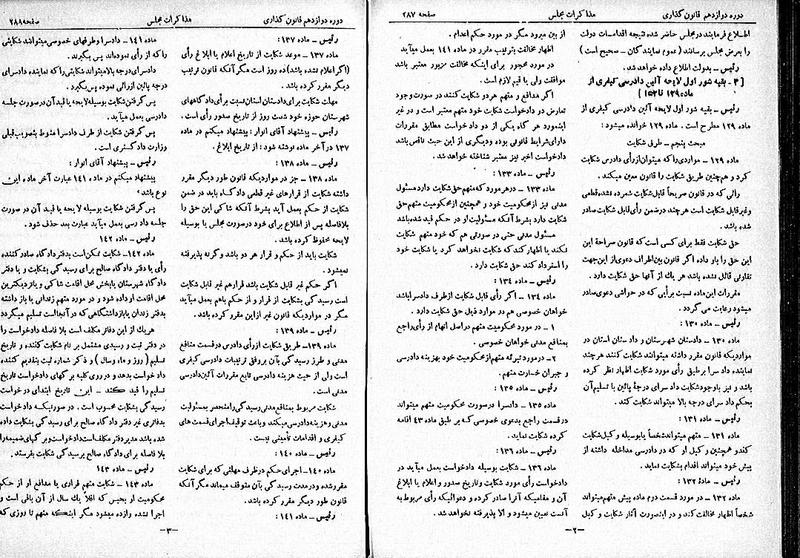 دوره دوازدهم قانون گذاری
مذاکرات مجلس
صفحه ۲۸۷
اطلاع فرمایند در مجلس حاضر شده نتیجه اقدامات دولت
را بعرض مجلس برسانند (عموم نمایندگان - صحیح است)
رئیس - بدولت اطلاع داده خواهد شد.
[۴ - بقیه شور اول لایحه آئین دادرسی کیفری از
ماده ۱۲۹ تا ۱۵۳]
رئیس - بقیه شور اول لایحه آئین دادرسی کیفری از
ماده ۱۲۹ مطرح است. ماده ۱۲۹ خوانده میشود:
مبحث پنجم - طرق شکایت
ماده ۱۲۹ - مواردی که میتوان از رأی دادرس شکایت
کرد و همچنین طریق شکایت را قانون معین میکند.
رائی که در قانون صریحاً قابل شکایت شمرده نشده قطعی
و غیر قابل شکایت است هر چند در ضمن رأی قابل شکایت صادر
شده باشد.
حق شکایت فقط برای کسی است که قانون صراحة این
حق را باو داده اگر قانون بین اطراف دعوی از این جهت
تفاوتی قائل نشده باشد هر یک از آنها حق شکایت دارد.
مقررات این ماده نسبت برأیی که در حواشی دعوی صادر
میشود رعایت می گردد.
رئیس - ماده ۱۳۰:
ماده ۱۳۰ - دادستان شهرستان و دادستان استان در
مواردیکه قانون مقرر داشته میتوانند شکایت کنند هر چند
نماینده دادسرا بر طبق رأی مورد شکایت اظهار نظر کرده
باشد و نیز با وجود شکایت دادسرای درجهٔ پائین با تسلیم آن
بحکم دادسرای درجه بالا میتواند شکایت کند.
رئیس - ماده ۱۳۱:
ماده ۱۳۱ - متهم میتواند شخصاً یا بوسیله وکیل شکایت
کند و همچنین وکیل او که در دادرسی مداخله داشته از
پیش خود میتواند اقدام بشکایت نماید.
رئیس - مادهٔ ۱۳۲:
ماده ۱۳۲ - در مورد قسمت دوم ماده پیش متهم میتواند
شخصاً اظهار مخالفت کند و در اینصورت آثار شکایت و کیل
از بین میرود مگر در مورد حکم اعدام.
اظهار مخالفت بترتیب مقرر در ماده ۱۴۱ بعمل میآید
در مورد محجور برای اینکه مخالفت مزبور معتبر باشد
موافقت ولی یا قیم لازم است.
اگر مدافع و متهم هر دو شکایت کنند در صورت وجود
تعارض در دادخواست شکایت خود متهم معتبر است و در غیر
اینمورد هر گاه یکی از دو دادخواست مطابق مقررات
دارای شرایط قانونی بوده و دیگری از این حیث ناقص باشد
دادخواست اخیر نیز معتبر شناخته خواهد شد.
رئیس - ماده ۱۳۳:
ماده ۱۳۳ - در هر مورد که متهم حق شکایت دارد مسئول
مدنی نیز از محکومیت خود و همچنین از محکومیت متهم حق
شکایت دارد بشرط آنکه مسئولیت او در حکم قید شده باشد
مسئول مدنی حتی در صورتی هم که خود متهم شکایت
نکند یا اظهار کند که شکایت نخواهد کرد یا شکایت خود
را استرداد کند حق شکایت دارد.
رئیس - ماده ۱۳۴:
ماده ۱۳۴ - اگر رأی قابل شکایت از طرف دادسرا باشد
خواهان خصوصی هم در موارد فیل حق شکایت دارد.
۱ - در مورد محکومیت متهم در اصل اتهام از رأی راجع
بمنافع مدنی خواهان خصوصی.
۲ - در مورد تبرئه متهم از محکومیت خود بهزینه دادرسی
و جبران خسارت متهم.
رئیس - ماده ۱۳۵:
ماده ۱۳۵ - دادسرا در صورت محکومیت متهم میتواند
در قسمت راجع بدعوی خصوصی که بر طبق ماده ۴۳ اقامه
کرده شکایت نماید.
رئیس - ماده ۱۳۶:
ماده ۱۳۶ - شکایت بوسیله دادخواست بعمل میآید در
دادخواست رأی مورد شکایت و تاریخ صدور و اعلام یا ابلاغ
آن و مقامیکه آنرا صادر کرده و دعوائیکه رأی مربوط به
آنست تعیین میشود و الا پذیرفته نخواهد شد.
-۲-
دوره دوازدهم قانون گذاری
مذاکرات مجلس
صفحه ۲۸۹
رئیس - ماده ۱۳۷:
ماده ۱۳۷ - موعد شکایت از تاریخ اعلام یا ابلاغ رأی
(اگر اعلام نشده باشد) ده روز است مگر آنکه قانون ترتیب
دیگر مقرر کرده باشد.
مهلت شکایت برای دادستان استان نسبت برای دادگاههای
شهرستان حوزه خود شصت روز از تاریخ صدور رأی است.
رئیس - پیشنهاد آقای انوار: پیشنهاد میکنم در ماده
۱۳۷ در آخر ماده نوشته شود: از تاریخ ابلاغ.
رئیس - ماده ۱۳۸:
ماده ۱۳۸ - جز در مواردیکه قانون طور دیگر مقرر
داشته شکایت از قرارهای غیر قطعی دادگاه باید در ضمن
شکایت از حکم بعمل آید بشرط آنکه شاکی این حق را
بلافاصله پس از اطلاع برای خود در صورت مجلس یا بوسیله
لایحه محفوظ کرده باشد.
شکایت باید از حکم و قرار هر دو باشد و گرنه پذیرفته
نمیشود.
اگر حکم غیر قابل شکایت باشد قرار هم غیر قابل شکایت
است رسیدگی بشکایت از قرار و از حکم باهم بعمل میآید
مگر در مواردیکه قانون غیر از این مقرر کرده باشد.
رئیس - ماده ۱۳۹:
ماده ۱۳۹ - طریق شکایت از رأی دادرس در قسمت منافع
مدنی و طرز رسیدگی بآن بر وفق ترتیبات دادرسی کیفری
است ولی از حیث هزینه دادرسی تابع مقررات آئین دادرسی
مدنی است.
شکایت مربوط بمنافع مدنی رسیدگی را منحصر بمسئولیت
مدنی و هزینه دادرسی میکند و باعث توقیف اجرای قسمت های
کیفری و اقدامات تأمینی نیست.
رئیس - ماده ۱۴۰:
ماده ۱۴۰ - اجرای حکم در ظرف مهلتی که برای شکایت
مقرر شده و در مدت رسیدگی بآن متوقف میماند مگر آنکه
قانون طور دیگر مقرر کرده باشد.
رئیس - ماده ۱۴۱:
ماده ۱۴۱ - دادسرا و طرفهای خصوصی میتوانند شکایتی
را که از رأی نموده اند پس بگیرند.
دادسرای درجه بالا میتواند شکایتی را که نماینده دادسرای
درجه پائین از رائی نموده پس بگیرد.
پس گرفتن شکایت بوسیله لایحه یا قید آن در صورت جلسه
دادرسی بعمل میآید.
پس گرفتن شکایت از طرف دادسرا منوط بتصویب قبلی
وزارت دادگستری است.
رئیس - پیشنهاد آقای انوار:
پیشنهاد میکنم در ماده ۱۴۱ عبارت آخر ماده این
نوع باشد:
پس گرفتن شکایت بوسیله لایحه یا قید آن در صورت
جلسه دادرسی بعمل میآید عبارت بعد حذف شود.
رئیس - ماده ۱۴۲:
ماده ۱۴۲ - شکایت ممکن است بدفتر دادگاه صادر کننده
رأی یا دفتر دادگاه صالح برای رسیدگی بشکایت و یا دفتر
دادگاه شهرستان یا بخش محل اقامت شاکی و یا نزدیکترین
محل اقامت او داده شود و در مورد متهم زندانی یا بازداشته
بدفتر زندان یا بازداشتگاهی که در آنجا است تسلیم میگردد
هر یک از این دفاتر مکلف است بلافاصله دادخواست را
در دفتر ثبت و رسیدی مشتمل بر نام شکایت کننده و تاریخ
تسلیم (روز و ماه و سال) و ذکر شماره ثبت بتقدیم کننده
دادخواست بدهد و در روی کلیه برگهای دادخواست تاریخ
تسلیم را قید کند - این تاریخ ابتدای درخواست
رسیدگی بشکایت محسوب است. در صورتیکه دادخواست
بدفتری غیر دفتر دادگاه صالح برای رسیدگی بشکایت داده
شده باشد مدیر دفتر مکلف است دادخواست و برگهای ضمیمه را
بلافاصله برای دادگاه صالح بر سیدگی شکایت بفرستد.
رئیس - ماده ۱۴۳
ماده ۱۴۳ - شکایت متهم فراری یا مدافع او از حکم
محکومیت او بحبس که اقلاً یک سال از آن باقی است و
اجرا نشده رد میشود مگر اینکه متهم تا روزی که
-۳-